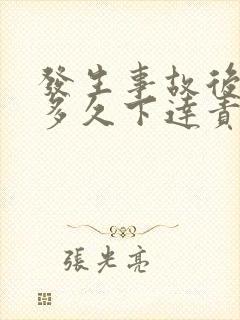 發生事故後
多久下達責
張光亮